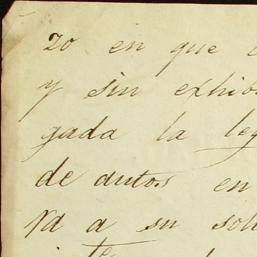 zo en que
y sin exhib
gada la leg
de autos en
va a su sol